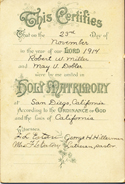 This Certifies
That on the 23rd day of
November
in the year of our LORD 1914
Robert W. Miller
and May V. Dobler
were by me united in
HOLY MATRIMONY
at San Diego, California
According to the ORDINANCE OF GOD
and the Laws of California
Witness